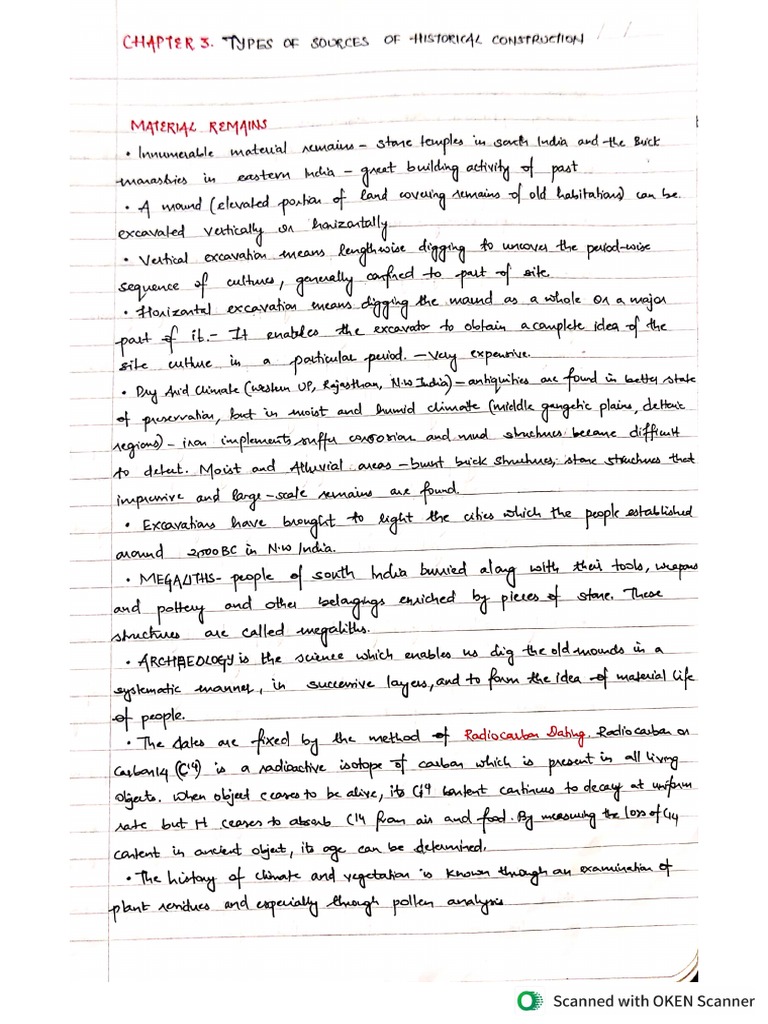 CHAPTER 3. TYPES OF SOURCES OF HISTORICAL CONSTRUCTION
MATERIAL REMAINS
• Innumerable material remains - stone temples in south India and the Brick
monastries in eastern India - great building activity of past
• A mound (elevated portion of land covering remains of old habitations) can be
excavated vertically or horizontally
• Vertical excavation means lengthwise digging to uncover the period-wise
sequence of cultures, generally confined to part of site
• Horizontal excavation means digging the mound as a whole or a major
part of it. - It enables the excavator to obtain a complete idea of the
site culture in a particular period. - Very expensive.
• Dry Arid climate (western UP, Rajasthan, N.W India) - antiquities are found in better state
of preservation, but in moist and humid climate (middle gangetic plains, deltaic
regions) - iron implements suffer corrosion and mud structures become difficult
to detect. Moist and Alluvial areas - burnt brick structures, stone structures that
impressive and large-scale remains are found.
• Excavations have brought to light the cities which the people established
around 2500 BC in N.W India.
• MEGALITHS - people of south India burried along with their tools, weapons
and pottery and other belongings enriched by pieces of stone. These
structures are called megaliths.
• ARCHAEOLOGY is the science which enables us dig the old mounds in a
systematic manner, in successive layers, and to form the idea of material life
of people.
• The dates are fixed by the method of Radiocarbon Dating. Radiocarbon or
Carbon14 (C14) is a radioactive isotope of carbon which is present in all living
objects. When object ceases to be alive, its C14 content continues to decay at uniform
rate but it ceases to absorb C14 from air and food. By measuring the loss of C14
content in ancient object, its age can be determined.
• The history of climate and vegetation is known through an examination of
plant residues and especially through pollen analysis
Scanned with OKEN Scanner